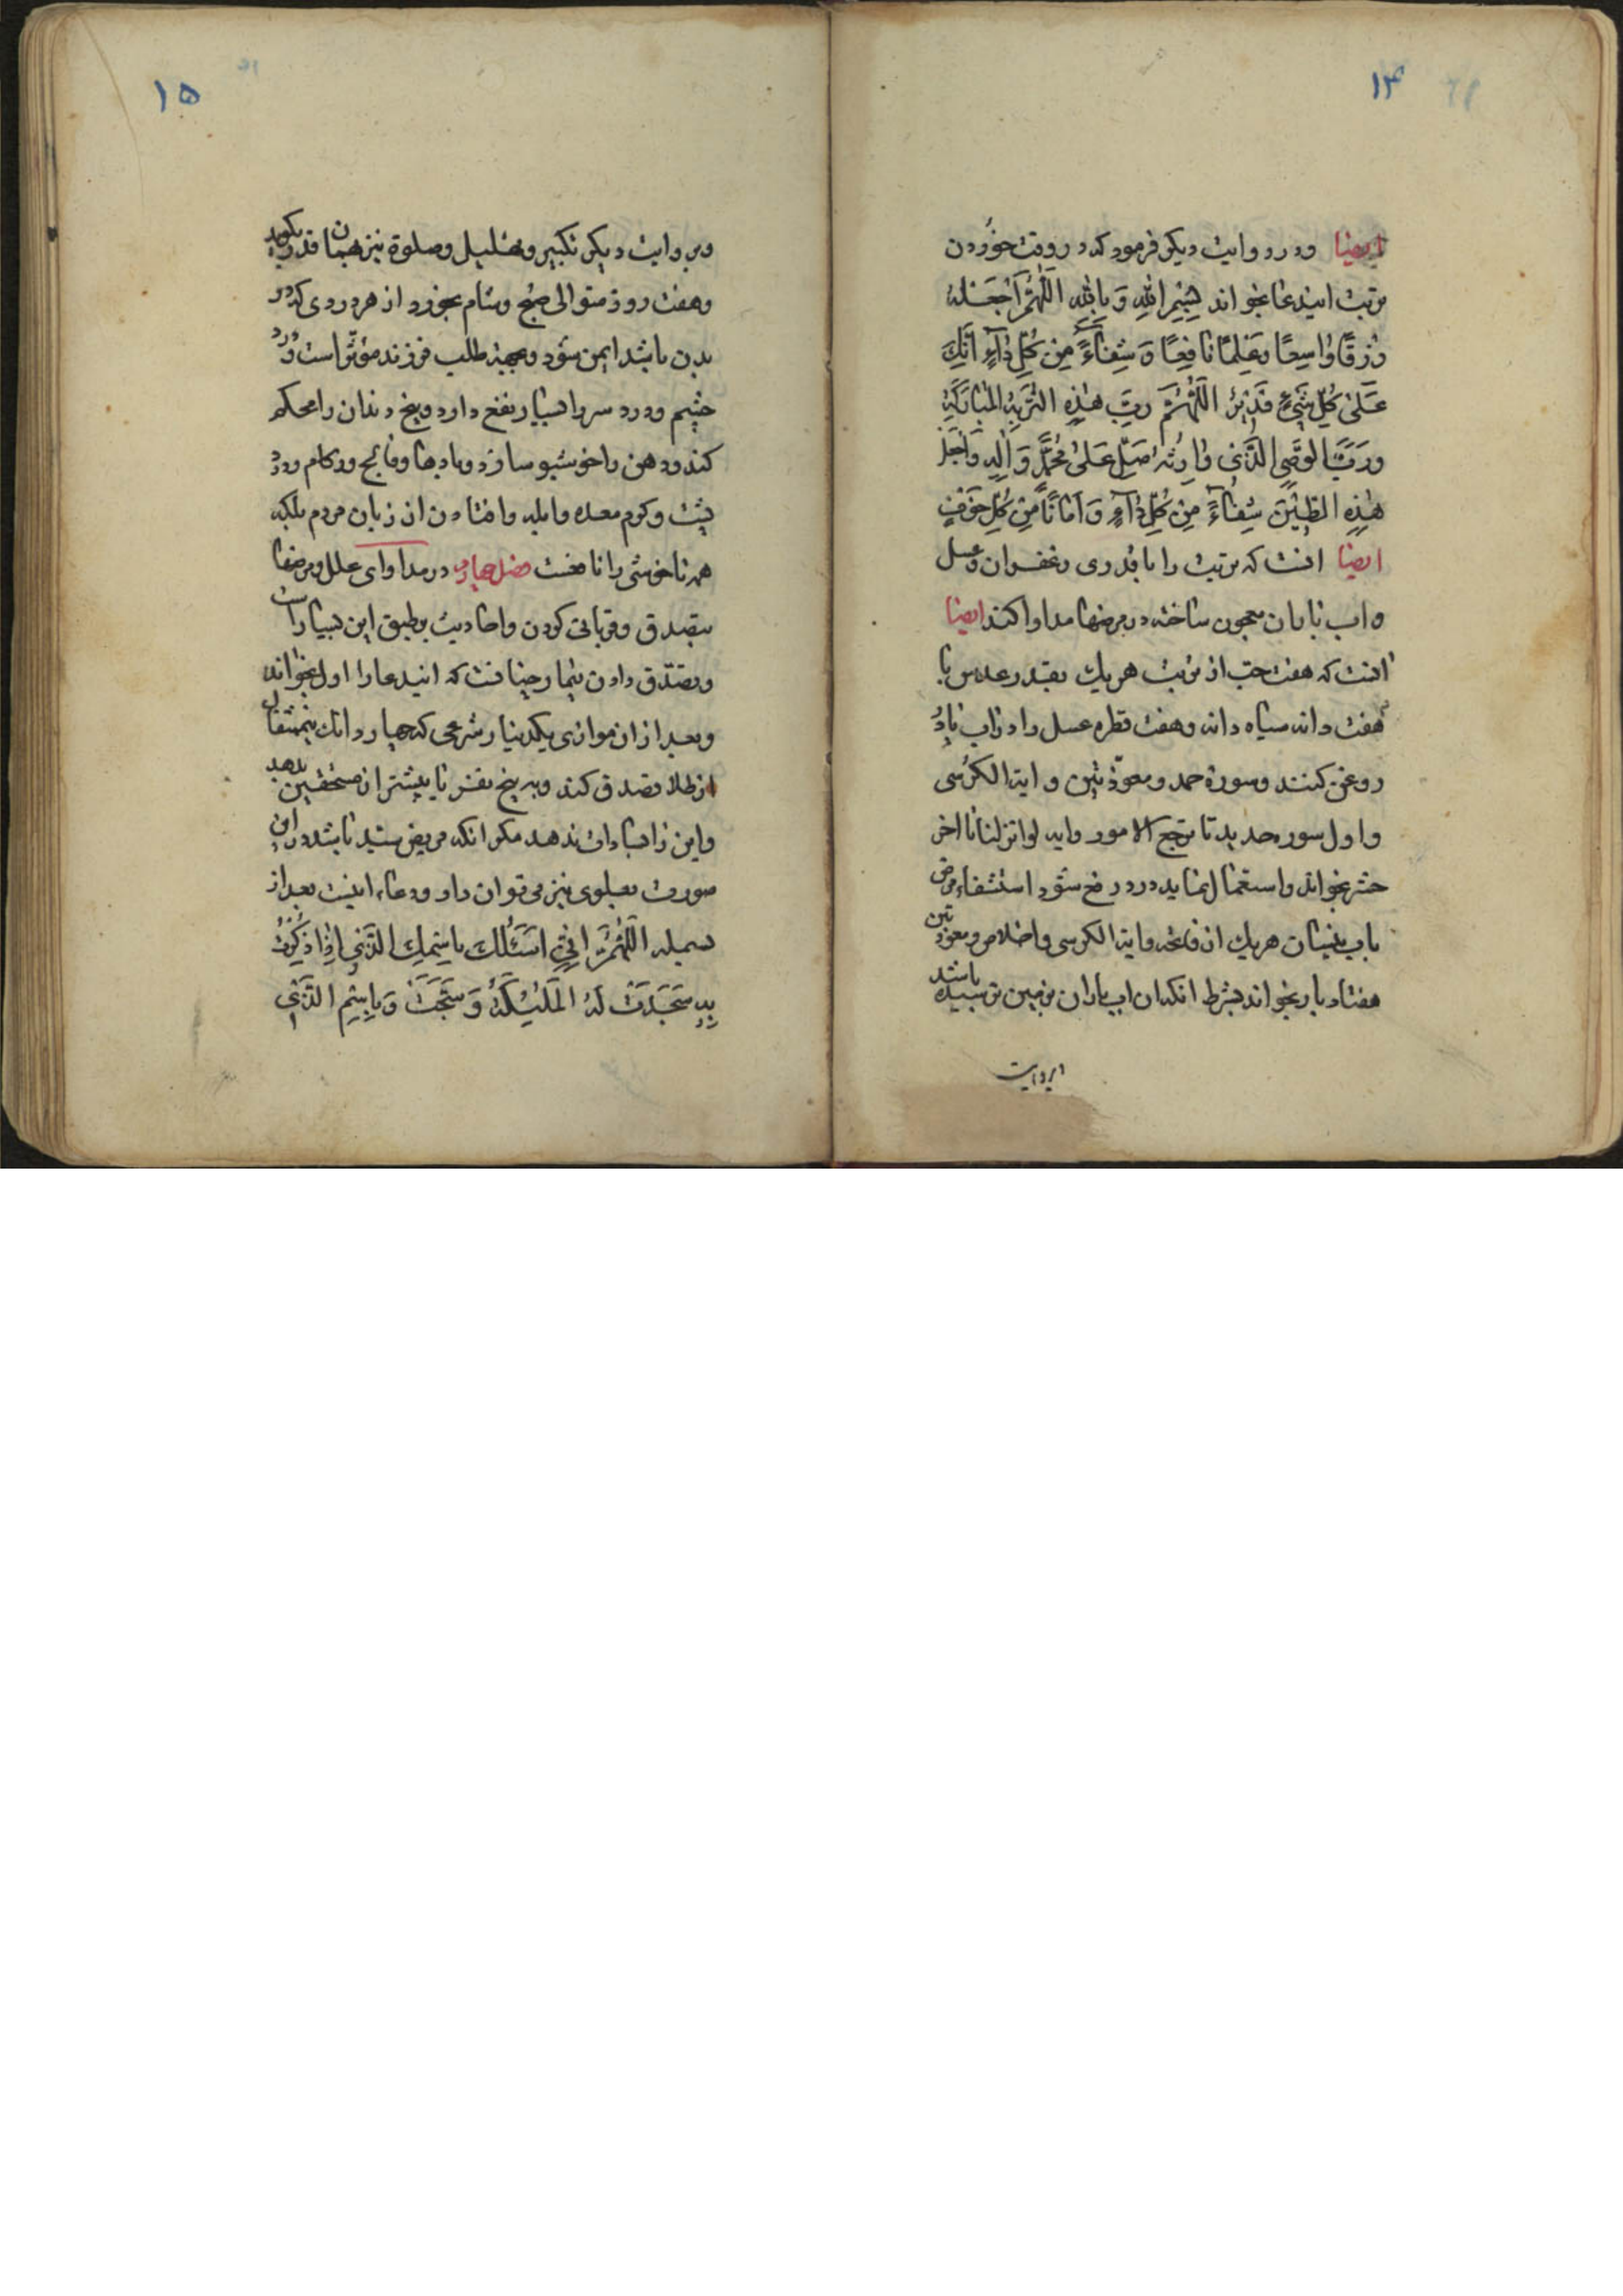 ۱۴
ایضا و در روایت دیکر فرمود که در وقت خوردن
تربت ایندعا بخواند بِسْمِ اللّٰهِ وَ بِاللّٰهِ اللّٰهُمَّ اجْعَلْهُ
رِزْقًا وٰاسِعًا وَعِلْمًا نٰافِعًا وَ شِفٰاءً مِنْ كُلِّ دٰآءٍ اِنَّكَ
عَلىٰ كُلِّ شَيْءٍ قَدٖيرٌ اَللّٰهُمَّ رَبَّ هٰذِهِ التُّرْبَةِ الْمُبٰارَكَةِ
وَرَبَّ الْوَصِيِّ الَّذٖي وٰارَتْهُ صَلِّ عَلىٰ مُحَمَّدٍ وَ اٰلِهِ وَاجْعَلْ
هٰذِهِ الطّٖينَ شِفٰآءً مِنْ كُلِّ دٰآءٍ وَ اَمٰانًا مِنْ كُلِّ خَوْفٍ
ایضا انست که تربت را با قدری زعفران و عسل
و اب باران معجون ساخته در مرضها مداوا کنند ایضا
انست که هفت حب از تربت هریك بقدر عدس با
هفت دانه سیاه دانه و هفت قطره عسل را در اب یا در
روغن کنند و سورهٔ حمد و معوّذتین و ایة الکرسی
و اول سوره حدید تا ترجع الامور و ایه لو انزلنا تا اخر
حشر بخواند و استعمال نماید درد رفع شود استشفاء مرض
باب نیسان هریك از فاتحه و ایة الکرسی و اخلاص و معوذتین
هفتاد بار بخواند بشرط انکه ان اب باران بزمین نرسیده باشد
بروایت
۱۵
و بروایت دیکر تکبیر و تهلیل و صلوة نیز همان قدر بکوید
و هفت روز متوالی صبح و شام بخورد از هر دردی که در
بدن باشد ایمن شود و بجهة طلب فرزند مؤثر است و درد
چشم و درد سر را بسیار نفع دارد و بیخ دندان را محکم
کند و دهن را خوشبو سازد و بادها و فالج و زکام و درد
پشت و کرم معده و ابله و افتادن از زبان مردم بلکه
همه ناخوشی را نافعست فصل چهارم در مداوای علل و مرضها
بتصدق و قربانی کردن و احادیث بر طبق این بسیار است
و تصدّق دادن بیمار چنانست که ایندعا را اول بخواند
و بعد از ان موازی یکدینار شرعی که چهار دانك نیم مثقال
از طلا تصدق کند و به پنج نفر یا بیشتر از مستحقین بدهد
و این را بسادات ندهد مکر انکه مریض سید باشد در این
صورت بعلوی نیز می توان داد و دعاء اینست بعد از
بسمله اَللّٰهُمَّ اِنّٖي اَسْئَلُكَ بِاسْمِكَ الَّذٖي اِذٰا ذُكِرْتَ
بِهِ سَجَدَتْ لَهُ الْمَلٰئِكَةُ وَ سَبَّحَتْ وَ بِاسْمِ الَّذٖي